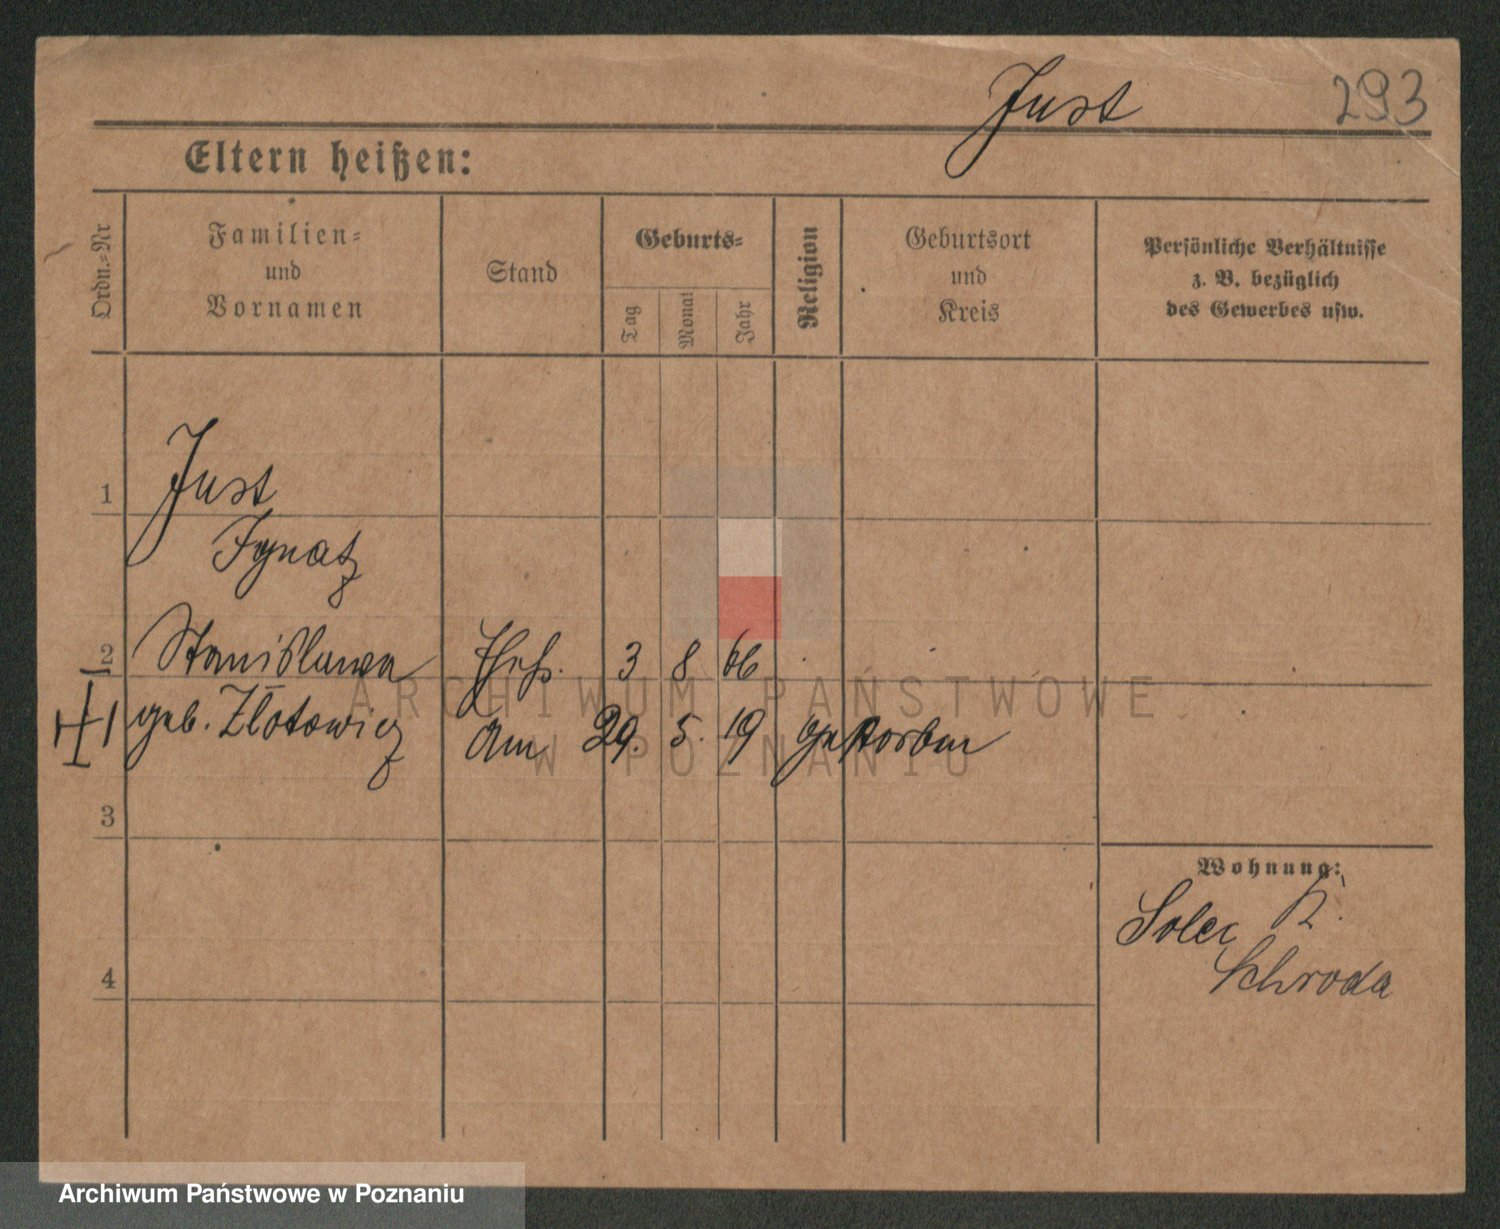 Just 293
Eltern heißen:
Ordn.-Nr
Familien-
und
Vornamen
Stand
Geburts-
Tag
Monat
Jahr
Religion
Geburtsort
und
Kreis
Persönliche Verhältnisse
z. B. bezüglich
des Gewerbes usw.
1 Just
Ignatz
2 Stanislawa Ehefr. 3 8 66
geb. Złotowicz am 29. 5. 19 gestorben
3
4
Wohnung:
Solec K.
Schroda
ARCHIWUM PAŃSTWOWE
W POZNANIU
Archiwum Państwowe w Poznaniu